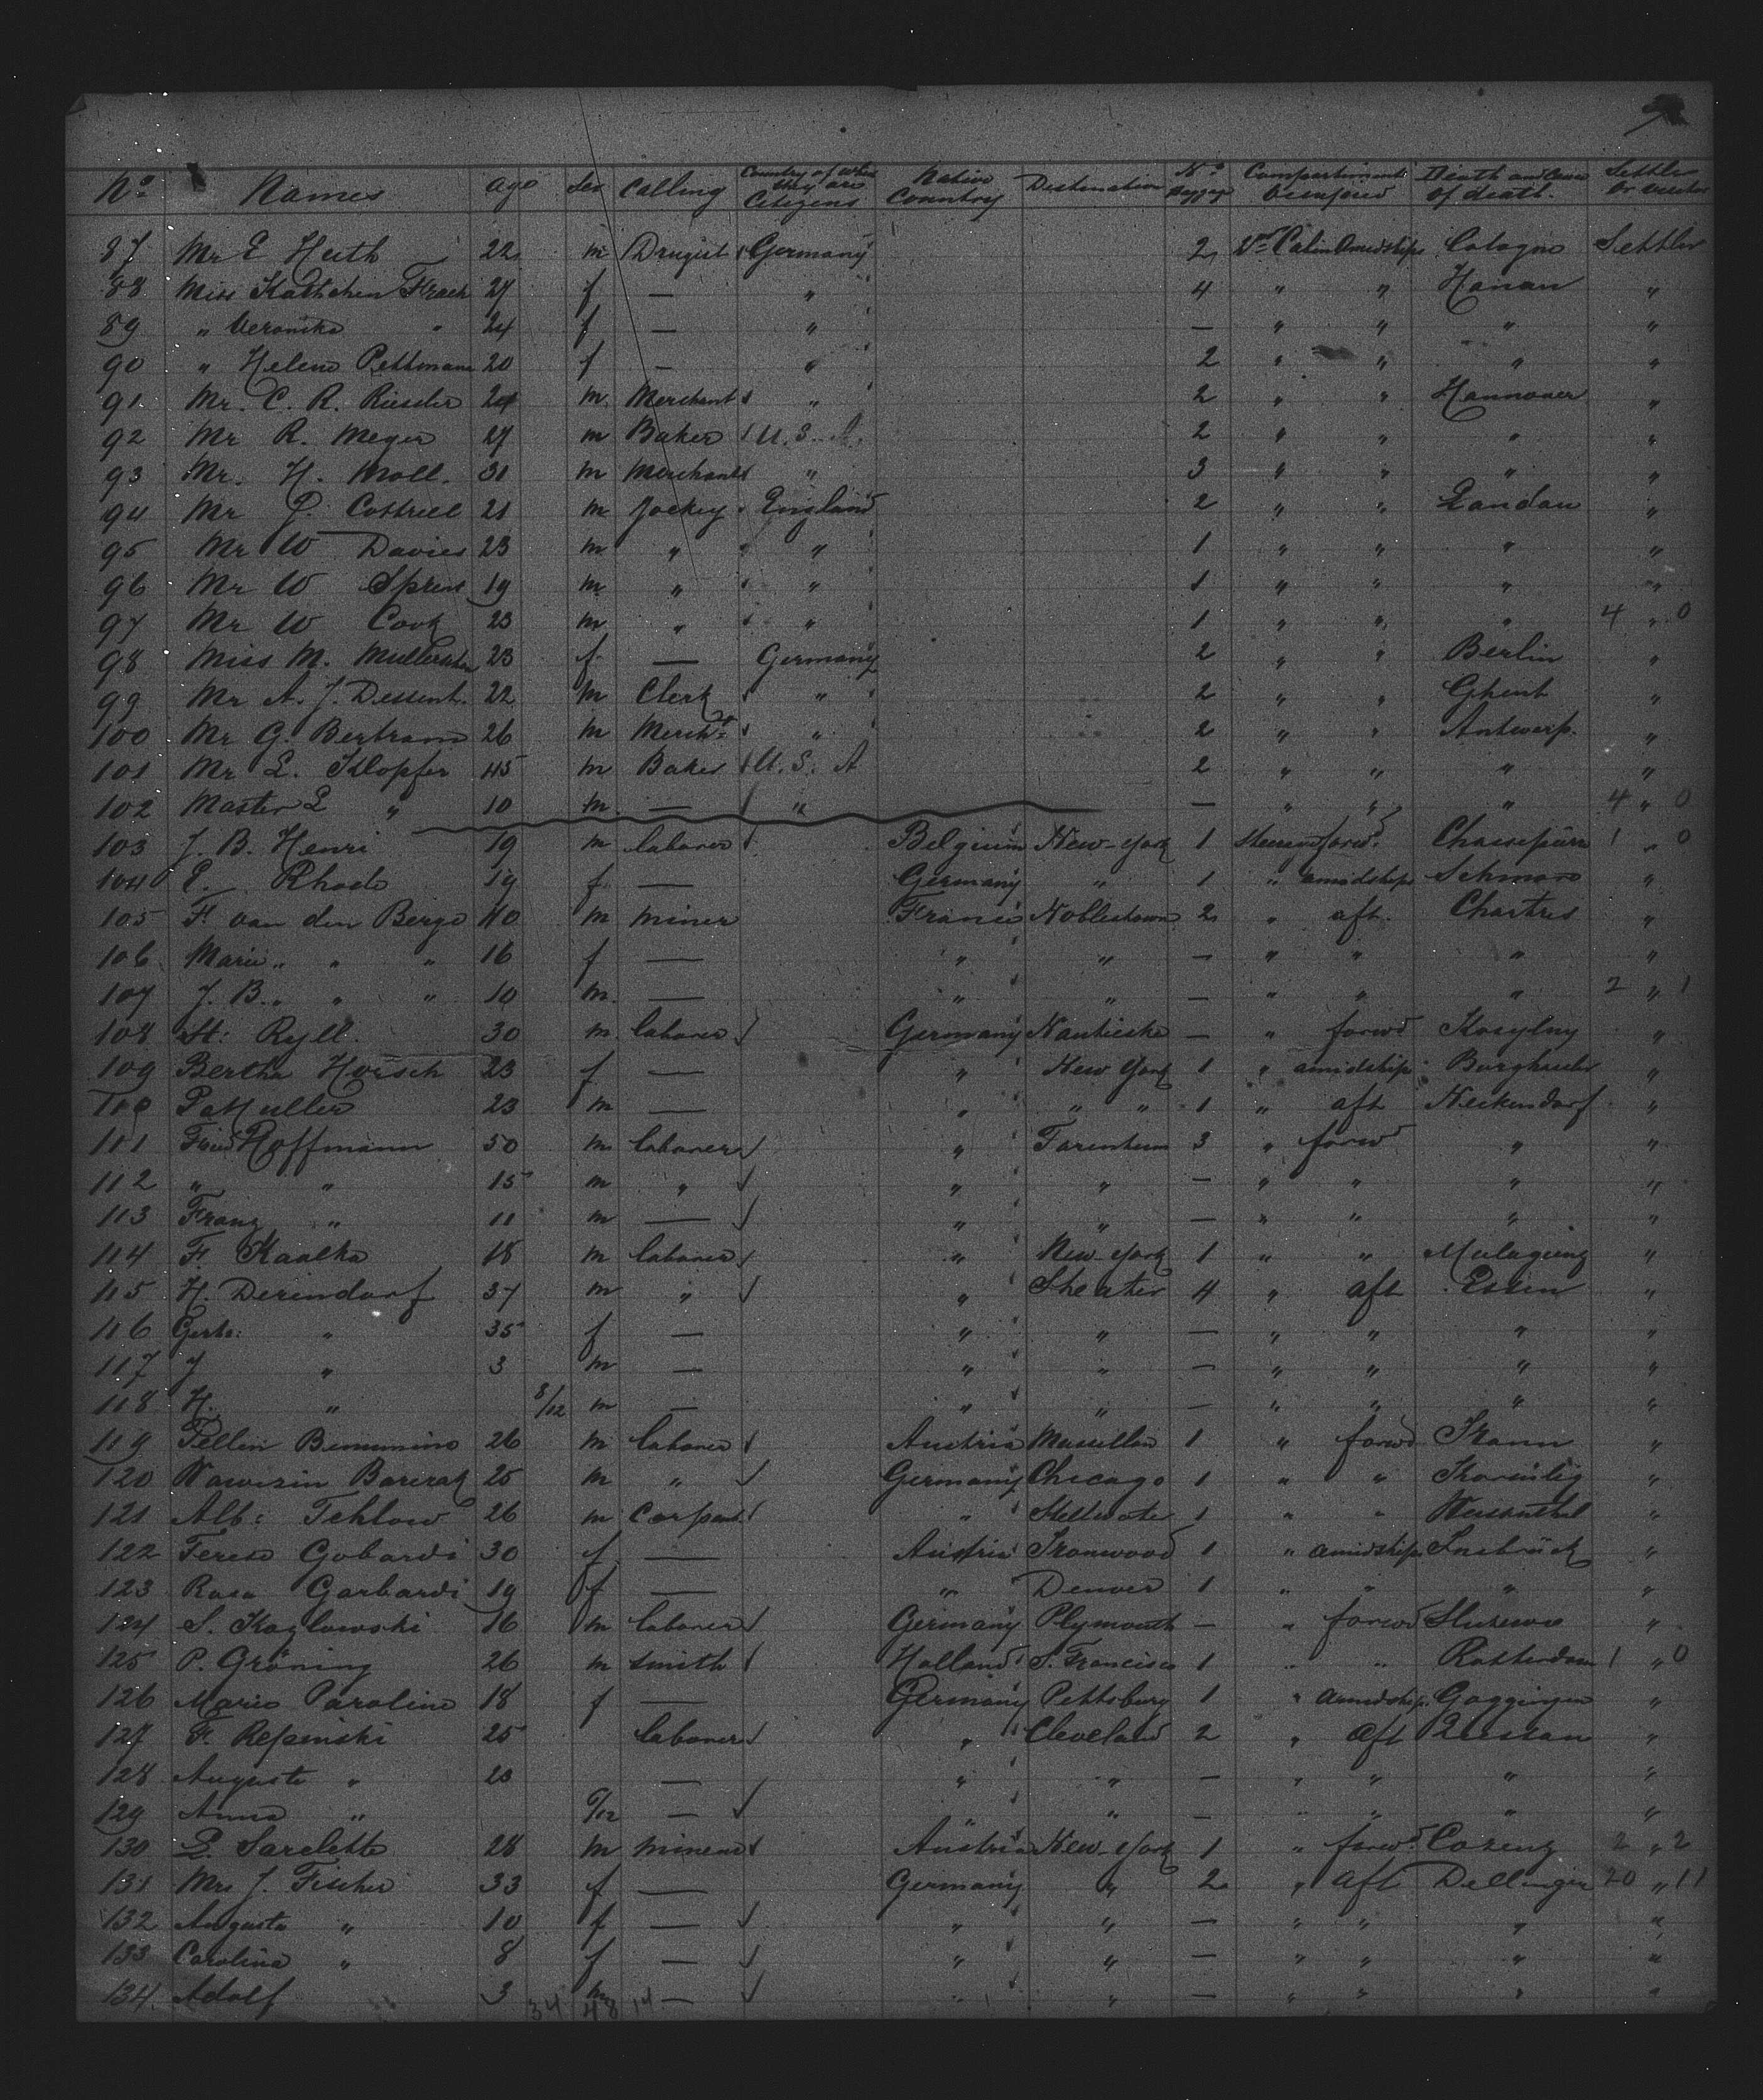 No. Names age Sex Calling Country of which they are Citizens Native Country Destination No. Baggage Compartiment Occupied Death and Cause of death. Settler or visitor
87 Mr E Heith 22 m Drugist Germany 2 2nd Cabin Amidships Cologne Settler
88 Miss Käthchen 27 f — " 4 " " Hanau "
89 " Veronika " 24 f — " — " " " "
90 " Helene 20 f — " 2 " " " "
91 Mr. C. R. 24 m Merchant " 2 " " Hannover "
92 Mr R. Meyer 27 m Baker U. S. A. 2 " " " "
93 Mr. H. Moll. 31 m Merchant " 3 " " " "
94 Mr Cottrell 21 m Jockey England 2 " " Landau "
95 Mr W Davies 23 m " " 1 " " " "
96 Mr W 19 m " " 1 " " " "
97 Mr W Cook 23 m " " 1 " " " 4 " 0
98 Miss M. 23 f — Germany 2 " " Berlin "
99 Mr A. J. Dessent. 22 m Clerk " 2 " " Ghent "
100 Mr G. Bertram 26 m Mercht " 2 " " Antwerp. "
101 Mr L. Klopfer 45 m Baker U. S. A 2 " " " "
102 Master L " 10 m. — " — " " " 4 " 0
103 J. B. Henri 19 m laborer Belgium New-York 1 Steerage forwd. 1 " 0
104 Rhode 19 f. — Germany " 1 " amidships "
105 F. van den Berge 40 m miner France Noblestown 2 " aft. Chartres "
106 Marie " " " 16 f — " " — " " " "
107 J. B. " " " 10 m. — " " — " " " 2 " 1
108 St: Ryll. 30 m. laborer Germany Nanticoke — " forwd "
109 Bertha Horsch 23 f — " New York 1 " amidships "
110 P. Muller 23 m — " " " 1 " aft Neckendorf "
111 Fried Hoffmann 50 m laborer " Tarentum 3 " forwd " "
112 " " 15 m " " " — " " " "
113 Franz " 11 m — " " — " " " "
114 F. Kaalka 18 m laborer " New-York 1 " " "
115 H. Derendorf 37 m " " 4 " aft Essen "
116 Gertr: " 35 f — " " — " " " "
117 J " 3 m — " " — " " " "
118 H. " 8/12 m — " " — " " " "
119 26 m laborer Austria Massillon 1 " forwd "
120 25 m " Germany Chicago 1 " " "
121 Alb: Tehlow 26 m Carpent. " Stillwater 1 " " "
122 Terese Gobardi 30 f — Austria Ironwood 1 " amidships Insbrück "
123 Rosa Garbardi 19 f — " Denver 1 " " " "
124 S. Kozlowski 16 m laborer Germany Plymouth — " forwd "
125 P. Gröning 26 m smith Holland S. Francisco 1 " " Rotterdam 1 " 0
126 Marie Paroline 18 f — Germany Pettsburg 1 " amidship. Goggingen "
127 F. Repinski 25 laborer " Cleveland 2 " aft "
128 Auguste " 23 — " " — " " " "
129 Anna " 6/12 — " " — " " " "
130 28 m miner Austria New-York 1 " forwd. 2 " 2
131 Mrs J. Fischer 33 f — Germany " 2 " aft Dellingen 20 " 11
132 Augusta " 10 f — " " — " " " "
133 Carolina " 8 f — " " — " " " "
134. Adolf 3 m — " " — " " " "
34 48 14